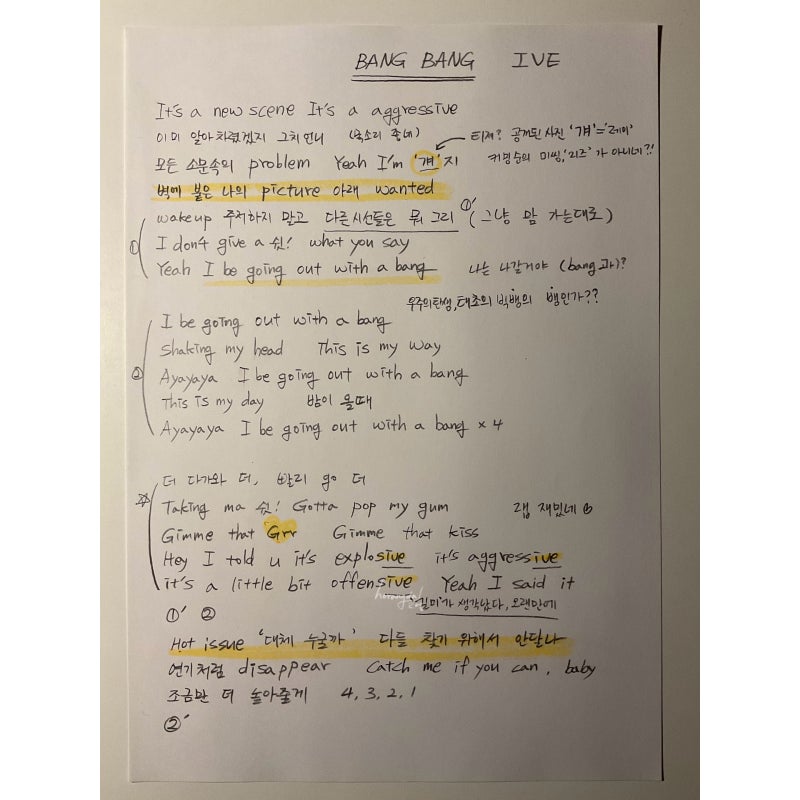 BANG BANG IVE
It's a new scene It's a aggressive
이미 알아차렸겠지 그치 언니 (목소리 좋네)
티저? 공개된 사진 '걔'='레이'
모든 소문속의 problem Yeah I'm '걔'지
커명승의 미씽, '리즈'가 아니네?!
벽에 붙은 나의 picture 아래 wanted
① wakeup 주저하지 말고 다른 시선들은 뭐 그리 ①' (그냥 맘 가는대로)
I don't give a 쉿! what you say
Yeah I be going out with a bang 나는 나갈거야 (bang과)?
우주의 탄생, 태초의 빅뱅의 뱅인가??
② I be going out with a bang
Shaking my head This is my way
Ayayaya I be going out with a bang
This is my day 밤이 올때
Ayayaya I be going out with a bang × 4
더 다가와 더, 빨리 go 더
☆ Taking ma 쉿! Gotta pop my gum 랩 재밌네
Gimme that Grr Gimme that kiss
Hey I told u it's explosive it's aggressive
it's a little bit offensive Yeah I said it
'길미'가 생각났다, 오랜만에
①' ②
Hot issue '대체 누굴까' 다들 찾기 위해서 안달나
연기처럼 disappear Catch me if you can, baby
조금만 더 놀아줄게 4, 3, 2, 1
②'